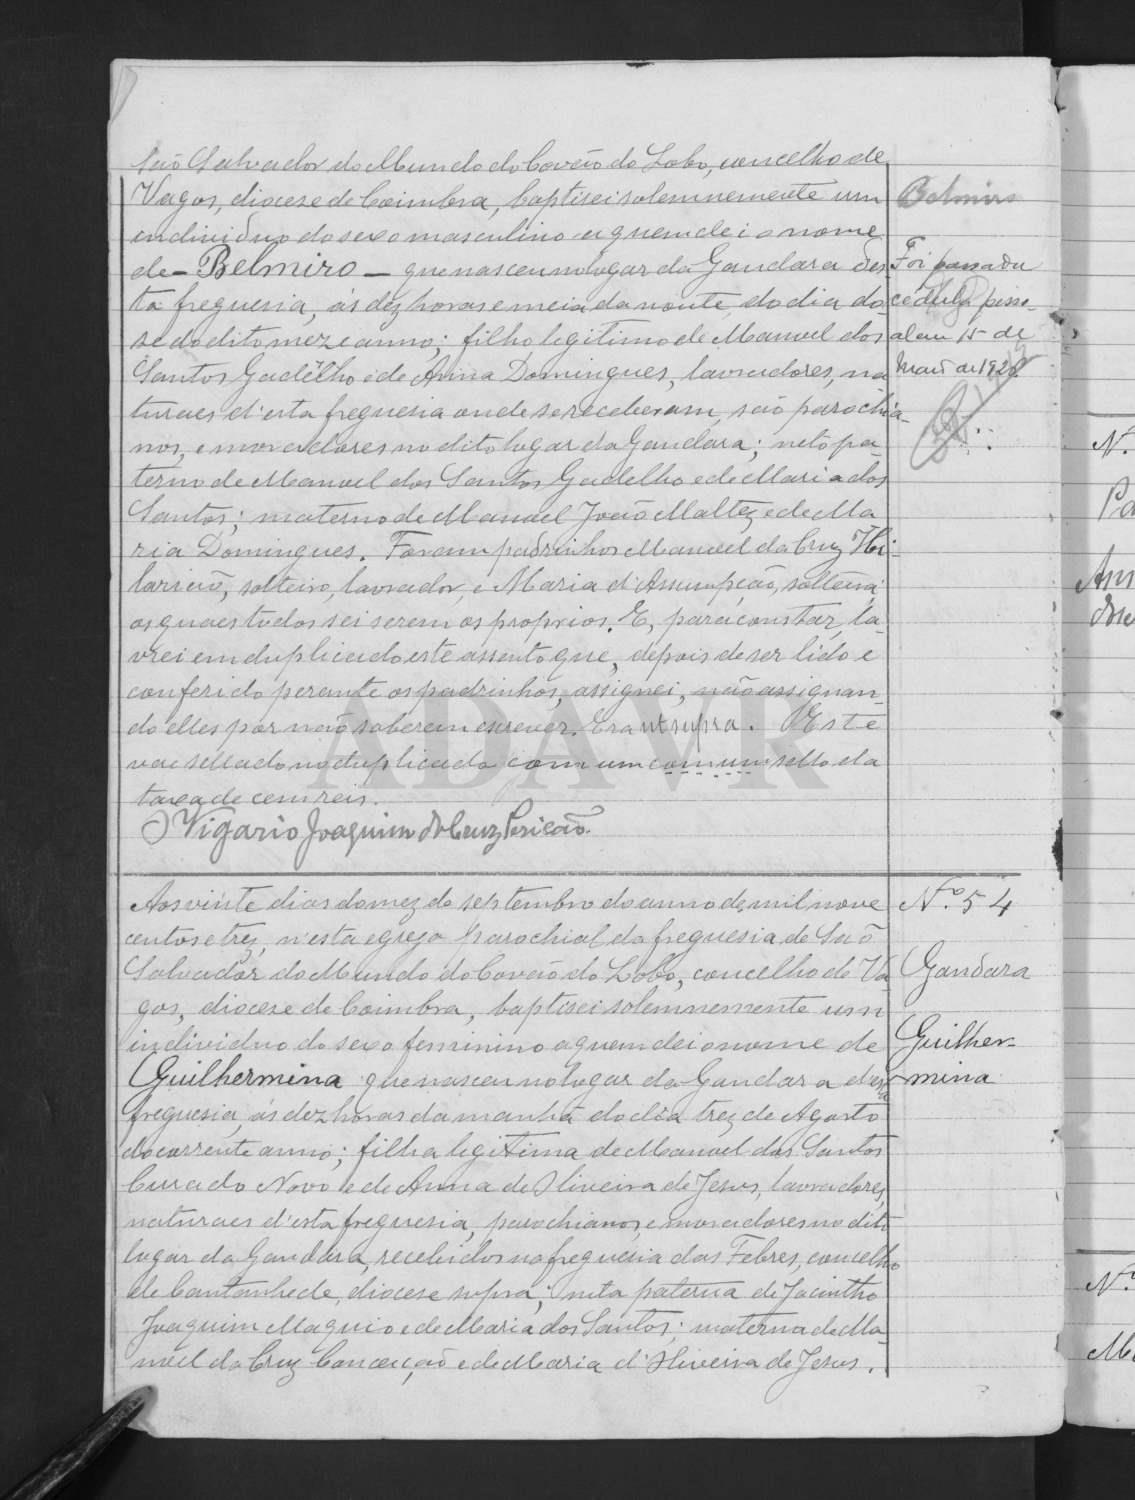 São Salvador do Mundo do Covão do Lobo, concelho de
Vagos, diocese de Coimbra, baptisei solemnemente um
individuo do sexo masculino a quem dei o nome
de - Belmiro - que nasceu no logar da Gandara des-
ta freguesia, ás dez horas e meia da noute do dia do-
se do dito mez e anno; filho legitimo de Manuel dos
Santos Gadelho e de Anna Domingues, lavradores, na
turaes d'esta freguesia onde se receberam, são parochia-
nos, e moradores no dito logar da Gandara; neto pa-
terno de Manuel dos Santos Gadelho e de Maria dos
Santos; materno de Manuel João Maltez e de Ma
ria Domingues. Foram padrinhos Manuel da Cruz Hi-
larião, solteiro, lavrador, e Maria d'Assumpção, solteira,
os quaes todos sei serem os proprios. E, para constar, la-
vrei em duplicado este assento que, depois de ser lido e
conferido perante os padrinhos, assignei, não assignan-
do elles por não saberem escrever. Era ut supra. Este
vae sellado no duplicado com um com um sello da
taxa de cem reis.
O Vigario Joaquim da Cruz Pericão.
Belmiro
Foi passada
cedula pesso-
al em 15 de
Maio de 1928
Aos vinte dias do mez de septembro do anno de mil nove
centos e trez, n'esta egreja parochial da freguesia de São
Salvador do Mundo do Covão do Lobo, concelho de Va
gos, diocese de Coimbra, baptisei solemnemente um
individuo do sexo feminino a quem dei o nome de
Guilhermina que nasceu no logar da Gandara d'esta
freguesia, ás dez horas da manhã do dia trez de Agosto
do corrente anno; filha legitima de Manuel dos Santos
Curado Novo e de Anna de Oliveira de Jesus, lavradores,
naturaes d'esta freguesia, parochianos, e moradores no dito
logar da Gandara, recebidos na freguesia das Febres, concelho
de Cantanhede, diocese supra; neta paterna de Jacintho
Joaquim Maquio e de Maria dos Santos; materna de Ma-
nuel da Cruz Conceição e de Maria d'Oliveira de Jesus.
Nº. 54
Gandara
Guilher-
mina
ADAVR